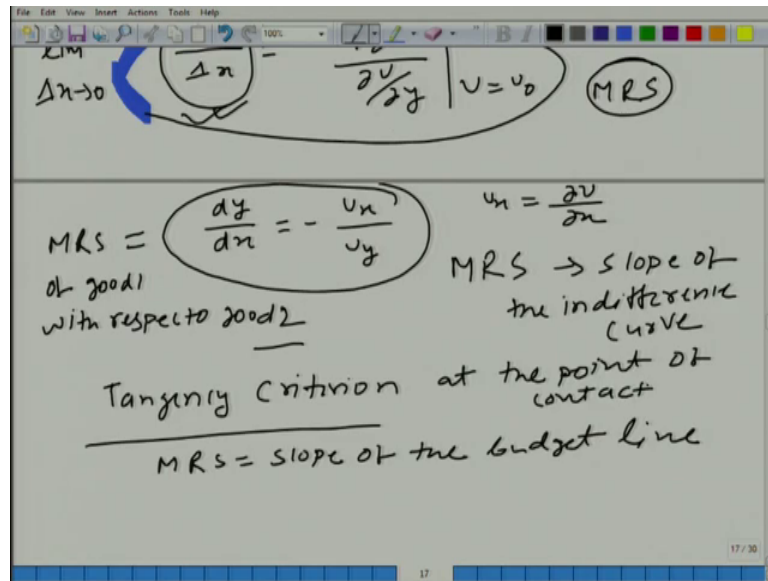 File Edit View Insert Actions Tools Help
100%
lim
Δx→0
Δx
=
∂U/∂y | U = U0
MRS
MRS = dy/dx = - Ux/Uy
of good1
with respecto good2
Ux = ∂U/∂x
MRS → slope of
the indifference
curve
Tangency Critirion at the point of
contact
MRS = slope of the budget line
17 / 30
17